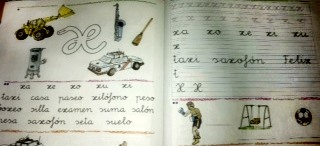 xa xe xo xu xi
taxi casa paseo xilófono peso
boxeo silla examen suma salón
mesa saxofón seta suelo
xa xo xe xi xu
x
taxi saxofón Felix
t
X X